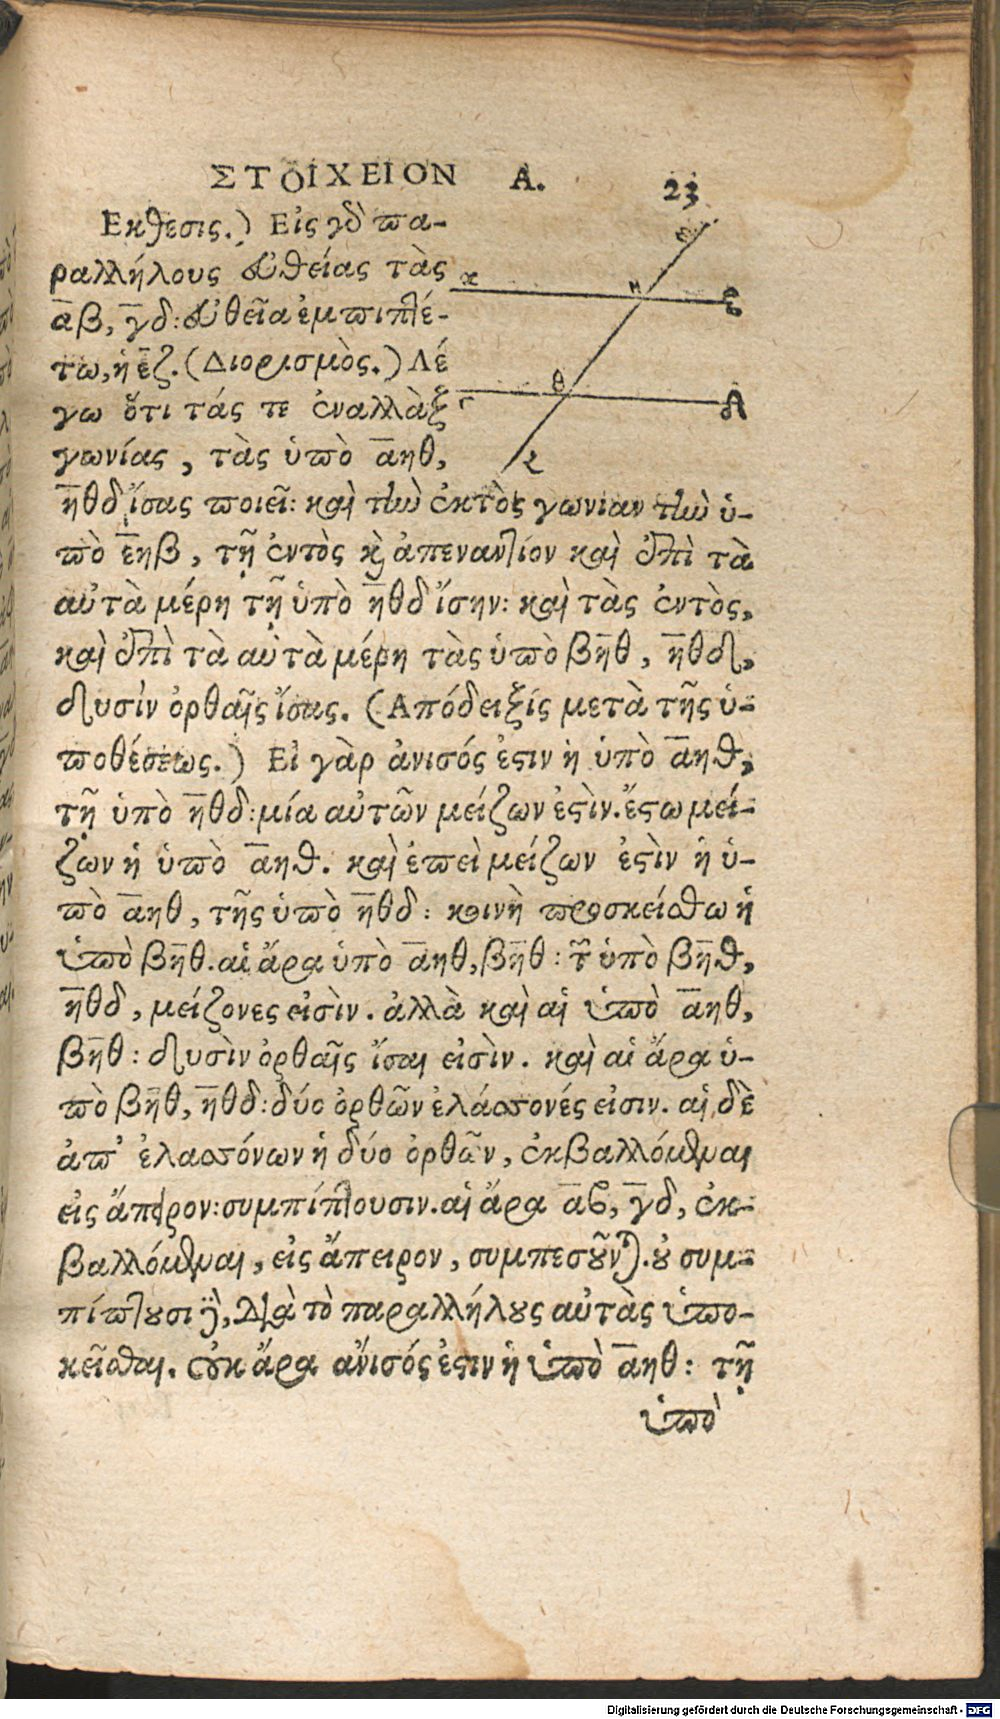 ΣΤΟΙΧΕΙΟΝ Α. 23
Εκθεσις.) Εἰς γὸ πα-
ραλλήλους εὐθείας τὰς
α̅β, γ̅δ: εὐθεῖα ἐμπιπτέ-
τω, ἡ ε̅ζ. (Διορισμὸς.) Λέ
γω ὅτι τάς τε ἐναλλὰξ
γωνίας, τὰς ὑπὸ α̅ηθ,
η̅θδ ἴσας ποιεῖ: καὶ τὴν ἐκτὸς γωνίαν τὴν ὑ-
πὸ ε̅ηβ, τῇ ἐντὸς κ̀ ἀπεναντίον καὶ ἐπὶ τὰ
αὐτὰ μέρη τῇ ὑπὸ η̅θδ ἴσην: καὶ τὰς ἐντὸς,
καὶ ἐπὶ τὰ αὐτὰ μέρη τὰς ὑπὸ βη̅θ, η̅θδ,
δυσὶν ὀρθαῖς ἴσας. (Απόδειξίς μετὰ τῆς ὑ-
ποθέσεως.) Εἰ γὰρ ἀνισός ἐστιν ἡ ὑπὸ α̅ηθ,
τῇ ὑπὸ η̅θδ: μία αὐτῶν μείζων ἐστὶν. ἔστω μεί-
ζων ἡ ὑπὸ α̅ηθ. καὶ ἐπεὶ μείζων ἐστὶν ἡ ὑ-
πὸ α̅ηθ, τῆς ὑπὸ η̅θδ: κοινὴ προσκείσθω ἡ
ὑπὸ βη̅θ. αἱ ἄρα ὑπὸ α̅ηθ, βη̅θ: τ῀ ὑπὸ βη̅θ,
η̅θδ, μείζονες εἰσὶν. ἀλλὰ καὶ αἱ ὑπὸ α̅ηθ,
βη̅θ: δυσὶν ὀρθαῖς ἴσαι εἰσὶν. καὶ αἱ ἄρα ὑ-
πὸ βη̅θ, η̅θδ: δύο ὀρθῶν ἐλάσσονές εἰσιν. αἱ δὲ
ἀπ’ ἐλασσόνων ἡ δύο ὀρθῶν, ἐκβαλλόμεναι
εἰς ἄπειρον: συμπίπτουσιν. αἱ ἄρα α̅β, γ̅δ, ἐκ-
βαλλόμεναι, εἰς ἄπειρον, συμπεσοῦνται. οὐ συμ-
πίπτουσι δὲ, διὰ τὸ παραλλήλους αὐτὰς ὑπο-
κεῖσθαι. οὐκ ἄρα ἄνισός ἐστιν ἡ ὑπὸ α̅ηθ: τῇ
ὑπὸ